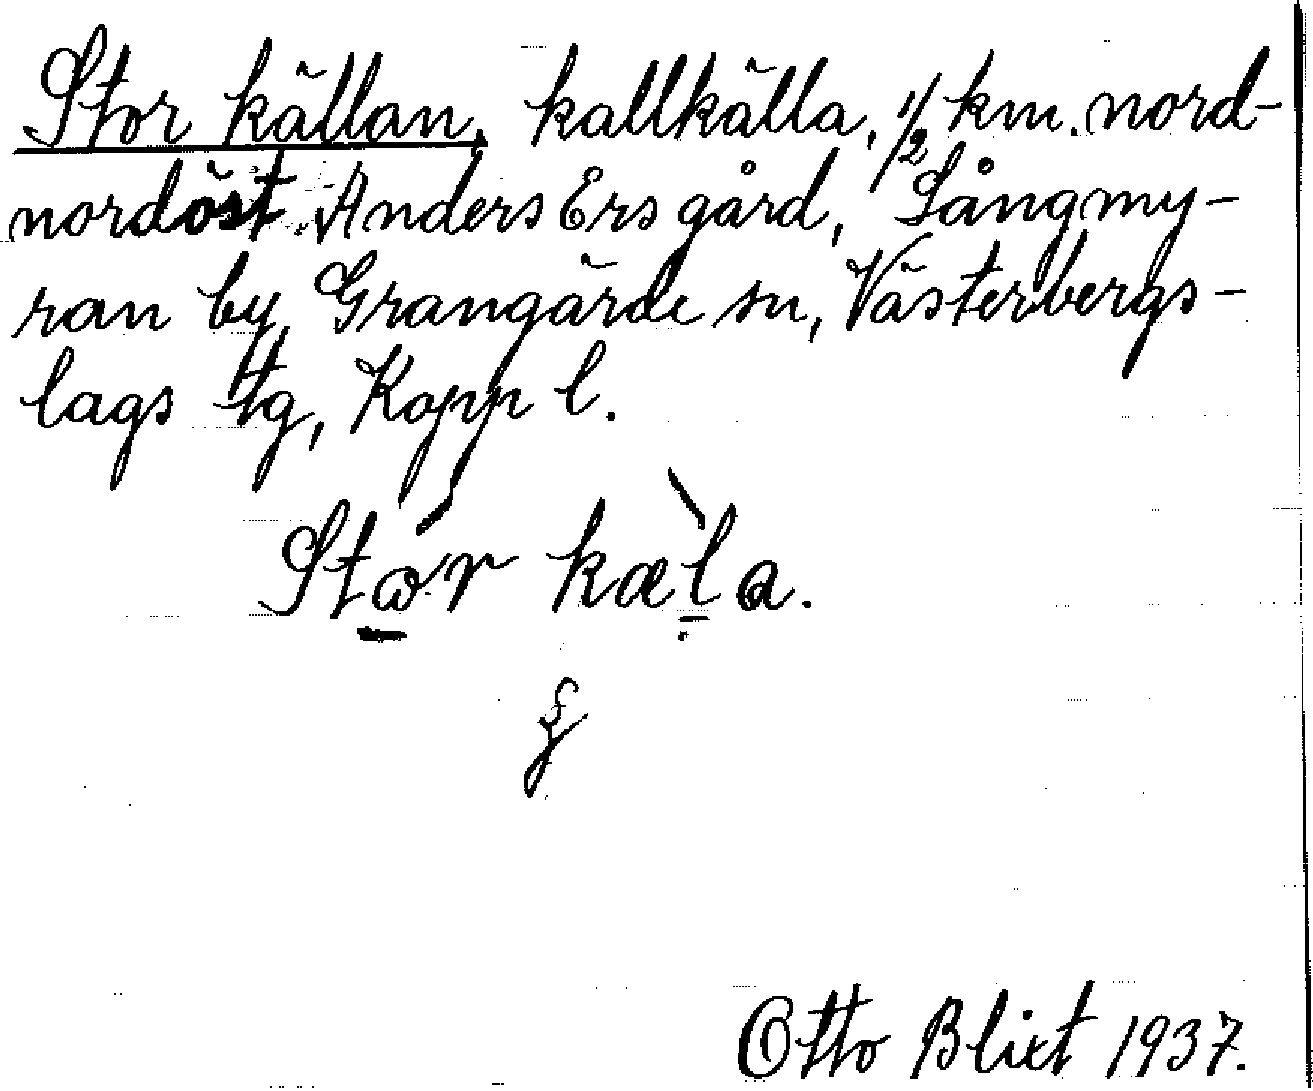 Stor källan, kallkälla, 1/2 km. nord-
nordöst Anders Ers gård, Långmy-
ran by, Grangärde sn, Västerbergs-
lags tg, Kopp l.
Stώ̱r kæ̀ḻa.
Otto Blixt 1937.